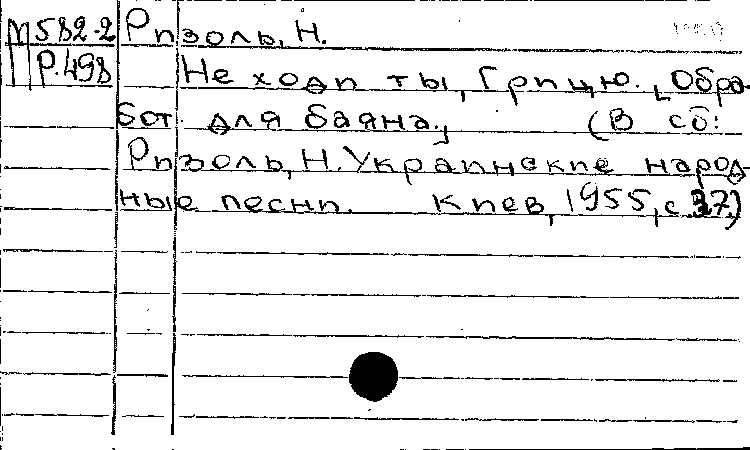 М 582-2 Ризоль, Н.
Р.498 Не ходи ты, Грицю. [Обра-
бот. для баяна.] (В сб:
Ризоль, Н. Украинские народ-
ные песни. Киев, 1955, с. 37.)